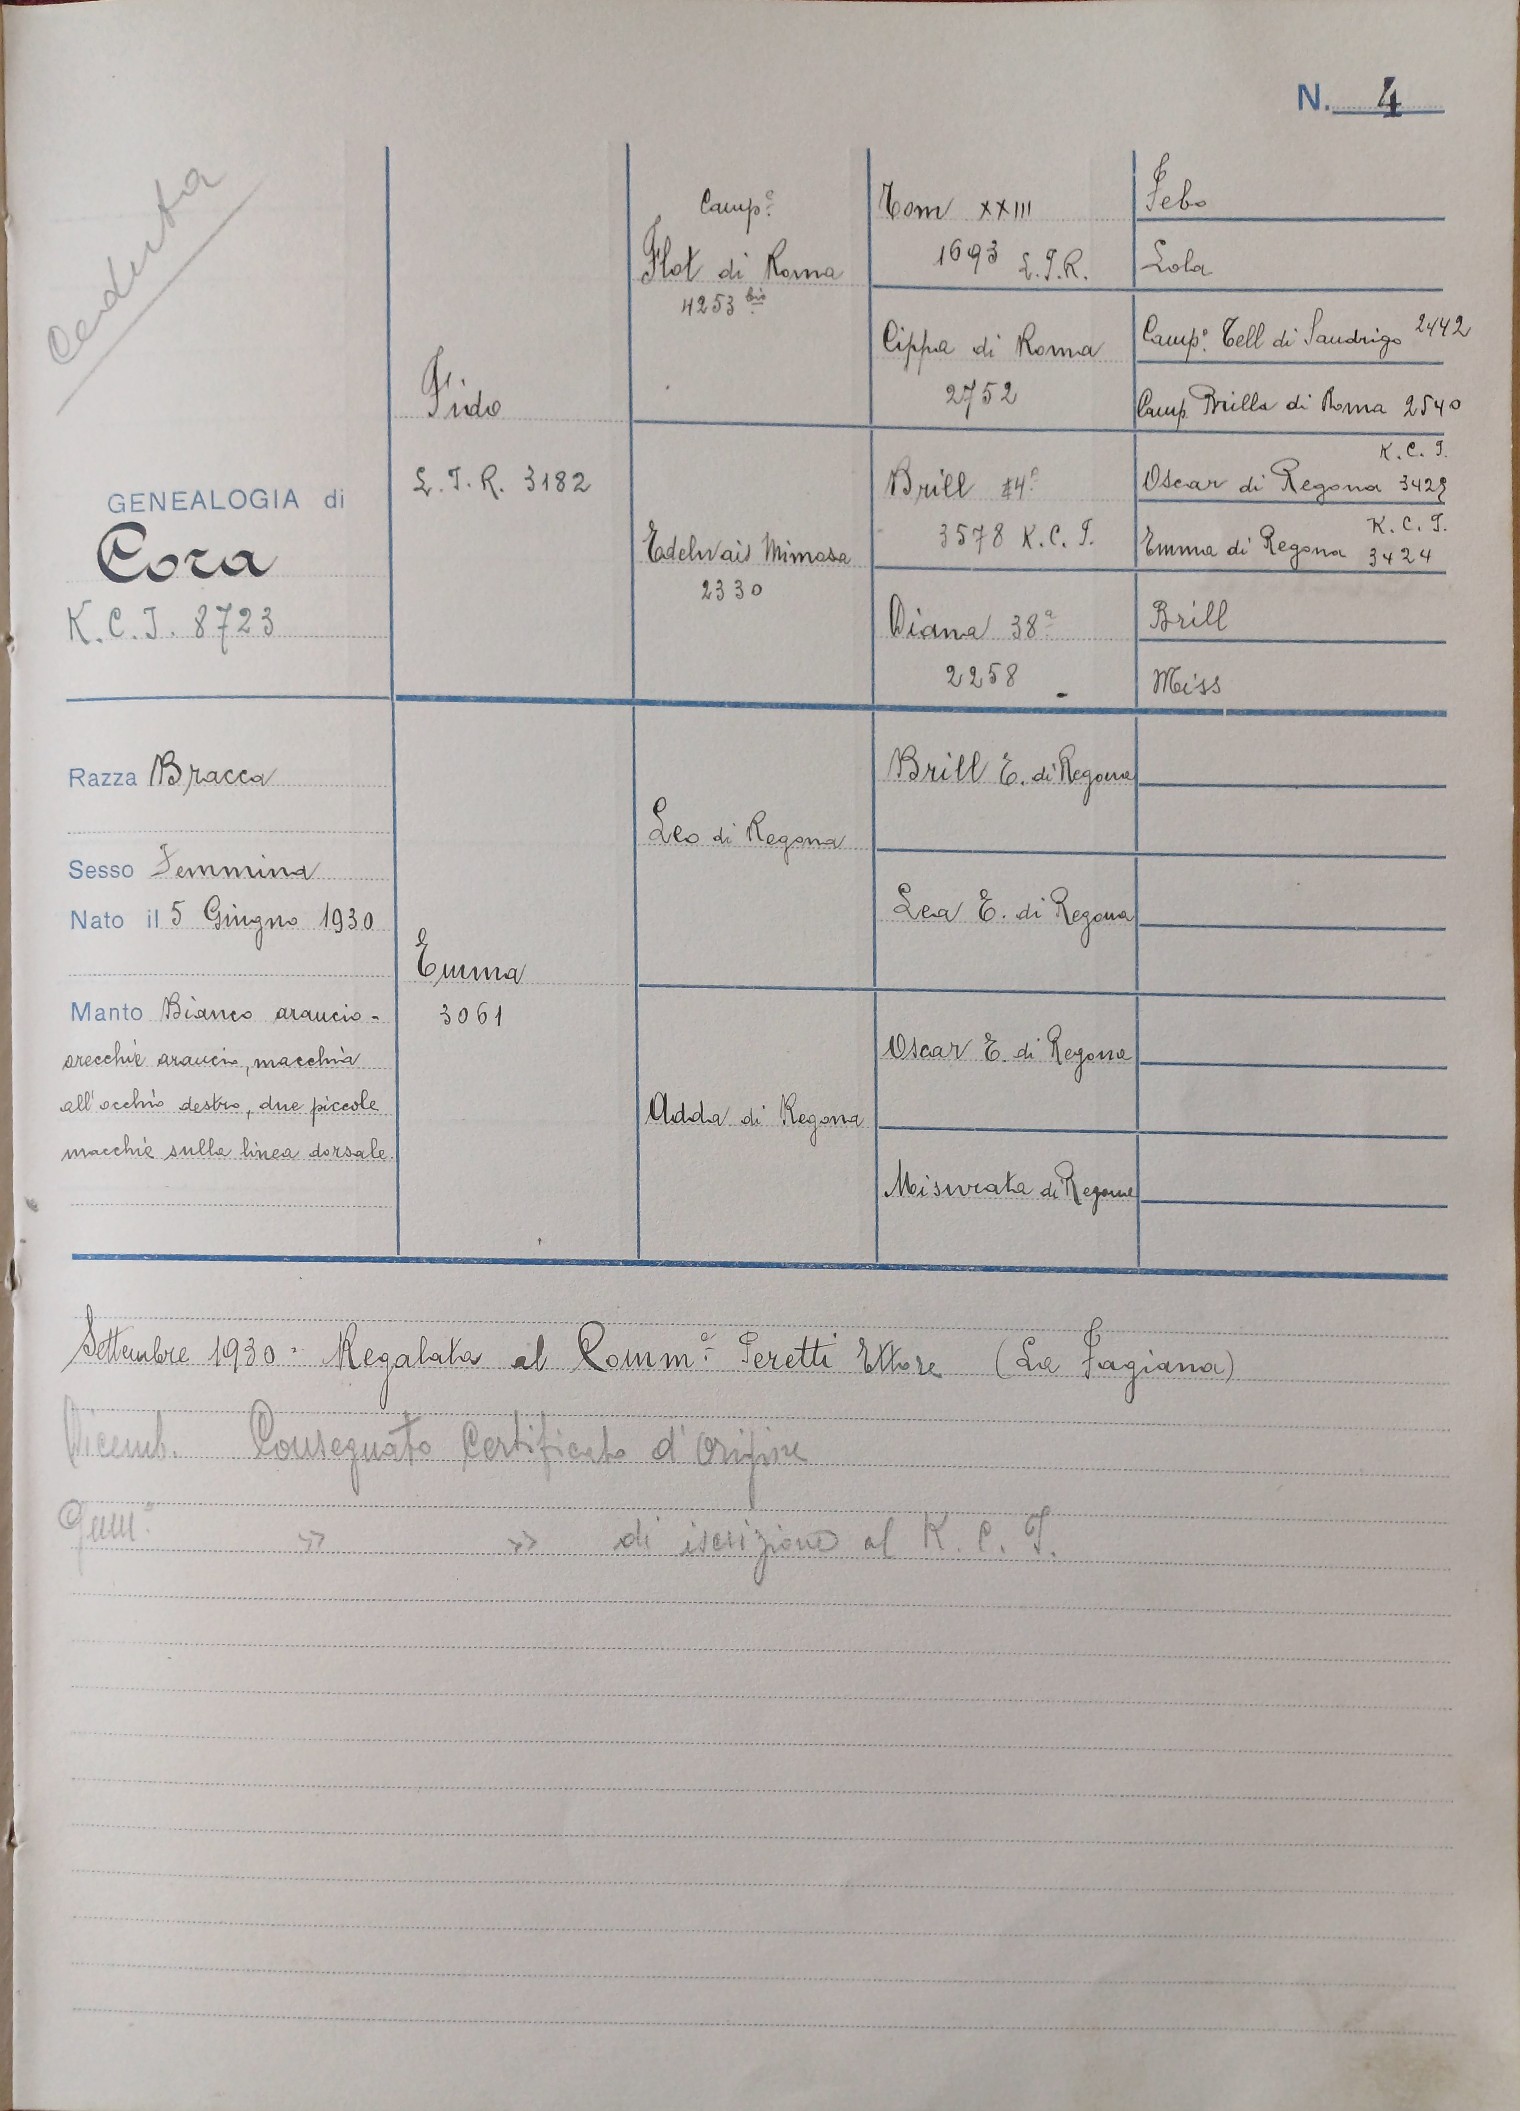 N. 4
Ceduta
GENEALOGIA di
Cora
K. C. I. 8723
Razza Bracca
Sesso Femmina
Nato il 5 Giugno 1930
Manto Bianco arancio -
orecchie arancio, macchia
all'occhio destro, due piccole
macchie sulla linea dorsale.
Fido
L. I. R. 3182
Emma
3061
Camp.e
Flot di Roma
4253 bis
Edelvais Mimosa
2330
Leo di Regona
Adda di Regona
Tom XXIII
1693 L. I. R.
Cippa di Roma
2752
Brill
3578 K. C. I.
Diana 38a
2258 -
Brill E. di Regona
Lea E. di Regona
Oscar E. di Regona
Misurata di Regona
Febo
Lola
Camp.e Tell di Sandrigo 2442
Camp. Brilla di Roma 2540
K. C. I.
Oscar di Regona
K. C. I.
Emma di Regona 3424
Brill
Miss
Settembre 1930 - Regalata al Comm.e Peretti Ettore (La Fagiana)
Dicemb. Consegnato Certificato d'origine
Genn.o » » di iscrizione al K. C. I.